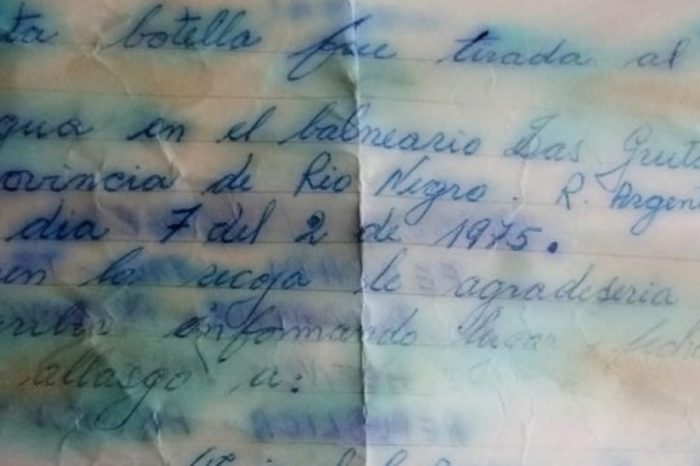 ta botella fue tirada al
gua en el balneario Las Gruta
ovincia de Rio Negro. R. Argen
dia 7 del 2 de 1975.
en la recoja le agradeseria
cribir informando lugar, fech
allasgo a: